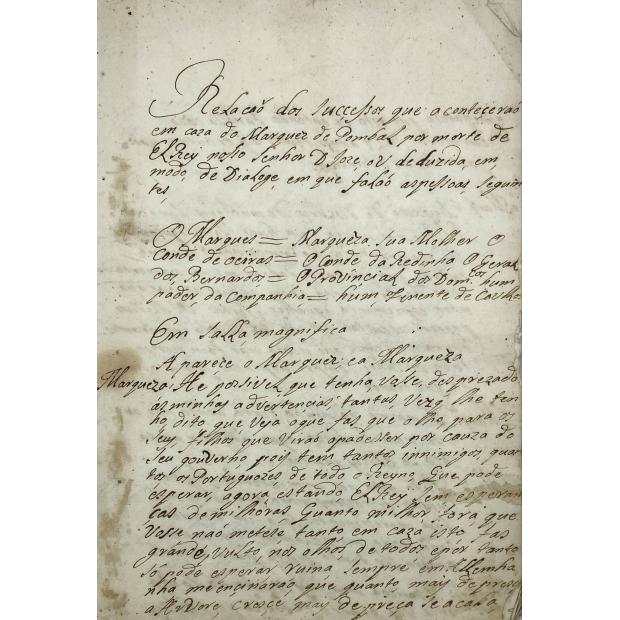 Relacaõ dos sucçessos, que aconteçeraõ
em caza do Marquez de Pombal, por morte de
ElRey nosso Senhor D Joze, ou deduzida, em
modo, de Dialogo, em que falaõ as pessoas, seguin
tes,
O Marques = Marqueza sua Molher O
Conde de oeiras = O Conde da Redinha O Geral
dos Bernardos = O Provincial dos Dom.cos hum
pader da Companhia = hum, Tenente de Cavllos
Em salla, magnifica
Aparece o Marquez, ea, Marqueza
Marqueza, He posivel, que tenha, Vase, desprezado
as minhas advertencias, tantas, Vezes, lhe ten
ho, dito que veja, oque fas, que olhe, para os
seus, filhos que viraõ apadeser por cauza do
seu gouverno pois tem tantos innimigos, quan
tos os Portuguezes de todo o Reyno, Que pode
esperar, agora, estando, ElRey sem esperan
cas de milhoras Quanto milhor, fora que
Vasse naõ metese tanto em caza isto, fas
grande, vulto, nos olhos de todos epor tanto
só pode esperar ruina, sempre em Allemha
nha me encinaraõ, que quanto, mais depresa
a Arvore, cresce, mais depreça se acaba,